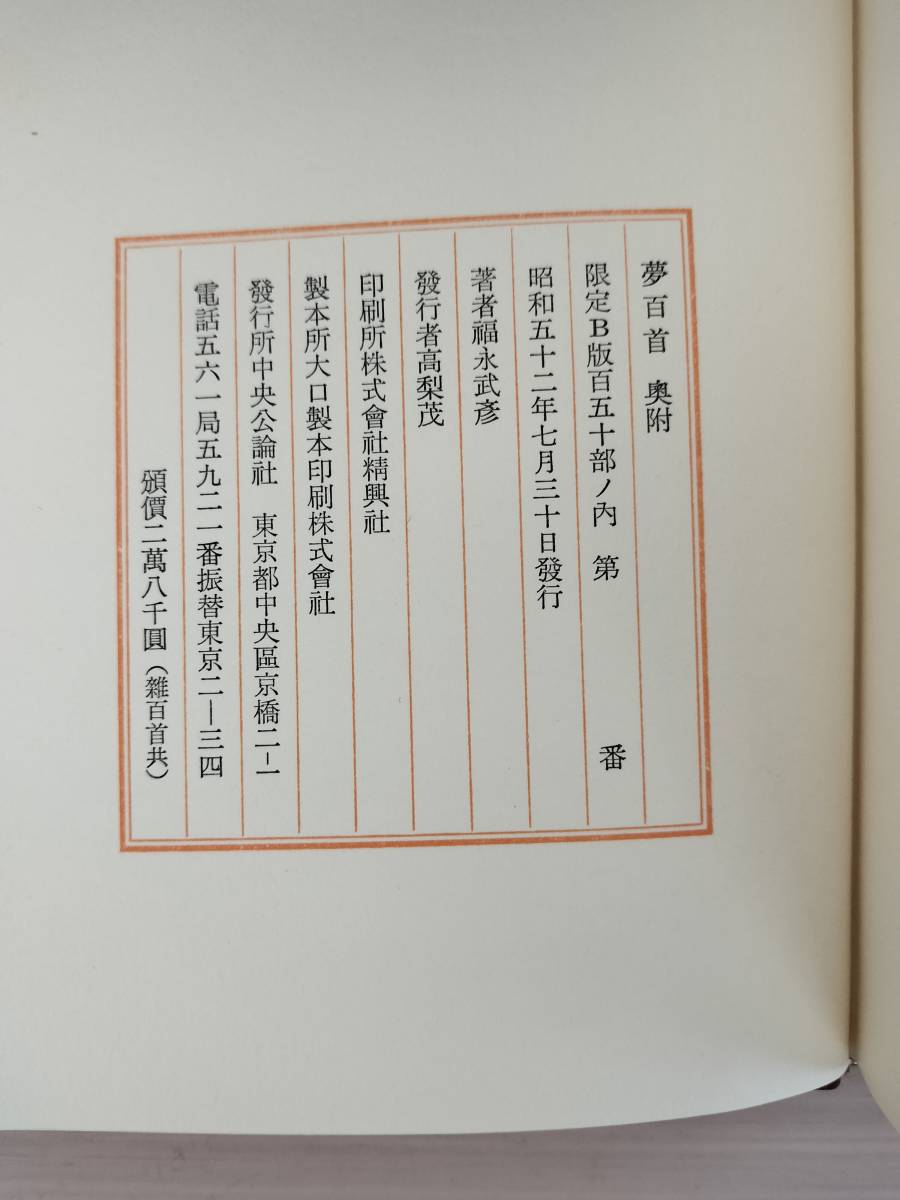 夢百首　奧附
限定B版百五十部ノ內　第　　　番
昭和五十二年七月三十日發行
著者福永武彥
發行者高梨茂
印刷所株式會社精興社
製本所大口製本印刷株式會社
發行所中央公論社　東京都中央區京橋二−一
電話五六一局五九二一番振替東京二—三四
頒價二萬八千圓（雜百首共）